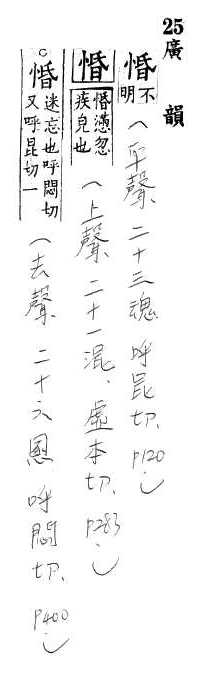 25廣韻
惛不明(平聲 二十三魂 呼昆切、P120)
惛惛懣忽疾皃也(上聲 二十一混、虛本切、P283)
惛迷忘也呼悶切又呼昆切一(去聲 二十六慁 呼悶切、P400)